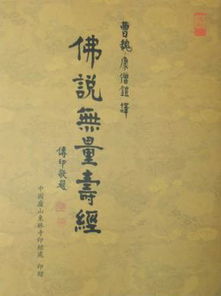 曹魏康僧鎧譯
佛說無量壽經
傳印敬題
中國廬山東林寺印經處 印贈